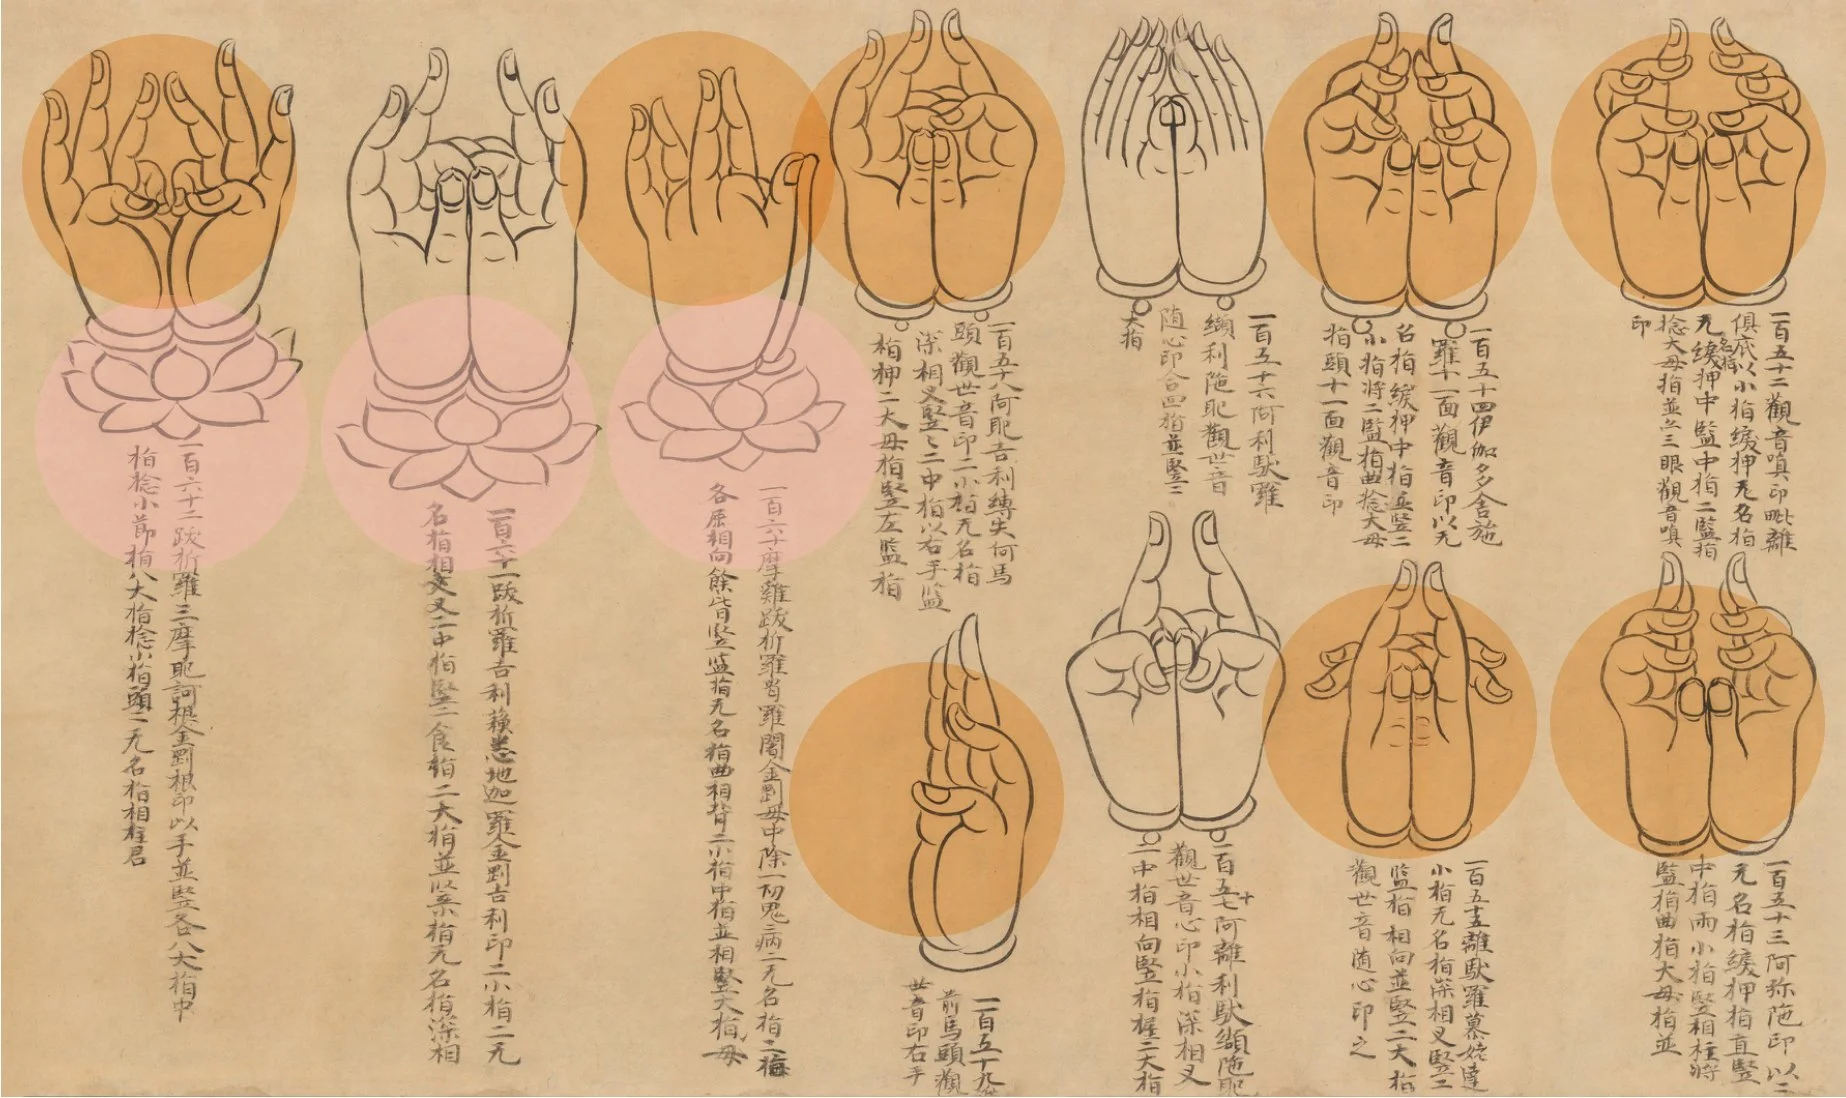 一百五十二觀音嗔印毗離
俱底以小指緩押无名指
无名指緩押中監中指二監指
捻大母指並三眼觀音嗔
印
一百五十三阿弥陁印以二
无名指緩押指直竪
中指兩小指竪相柱將
監指曲指大母指並
一百五十四伊伽多舍施
羅十一面觀音印以无
名指緩押中指並竪二
小指將二監指曲捻大母
指頭十一面觀音印
一百五十五離馱羅慕姥達
小指无名指深相叉竪二
監指相向並竪二大指
觀世音随心印之
一百五十六阿利馱羅
纈利陁毗觀世音
随心印合四指並竪二
大指
一百五十七阿離利馱纈陁毗
觀世音心印小指深相叉
二中指相向竪指握二大指
一百五十八阿毗吉利縛失何馬
頭觀世音印二小指无名指
深相叉竪二中指以右手監
指押二大母指竪左監指
一百五十九
前馬頭觀
世音印右手
一百六十摩雞跋折羅商羅闍金剛母中除一切鬼病二无名指二
各屈相向餘皆竪監指无名指曲相背二小指中指並相竪大指母
一百六十一跋折羅吉利蘓悉地迦羅金剛吉利印二小指二无
名指相叉二中指竪二食指二大指並竪小指无名指深相
一百六十二跋折羅三摩毗訶根金剛根印以手並竪各八大指中
指捻小節指八大指捻小指頭二无名指相柱君